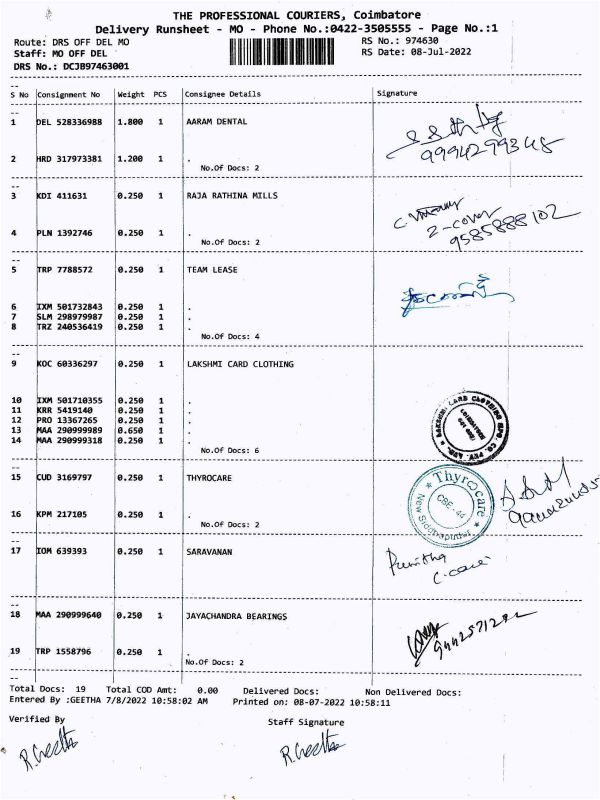 THE PROFESSIONAL COURIERS, Coimbatore
Delivery Runsheet - MO - Phone No.:0422-3505555 - Page No.:1
Route: DRS OFF DEL MO RS No.: 974630
Staff: MO OFF DEL RS Date: 08-Jul-2022
DRS No.: DCJB97463001
S No Consignment No Weight PCS Consignee Details Signature
1 DEL 528336988 1.800 1 AARAM DENTAL
9994299348
2 HRD 317973381 1.200 1 .
No.Of Docs: 2
3 KDI 411631 0.250 1 RAJA RATHINA MILLS
2-cover
9585888102
4 PLN 1392746 0.250 1 .
No.Of Docs: 2
5 TRP 7788572 0.250 1 TEAM LEASE
6 IXM 501732843 0.250 1 .
7 SLM 298979987 0.250 1 .
8 TRZ 240536419 0.250 1 .
No.Of Docs: 4
9 KOC 60336297 0.250 1 LAKSHMI CARD CLOTHING
10 IXM 501710355 0.250 1 .
11 KRR 5419140 0.250 1 .
12 PRO 13367265 0.250 1 .
13 MAA 290999989 0.650 1 .
14 MAA 290999318 0.250 1 .
No.Of Docs: 6
LAKSHMI CARD CLOTHING MFG. CO. PVT. LTD.
15 CUD 3169797 0.250 1 THYROCARE
Thyrocare
CBE-44
New Siddhapudur
16 KPM 217105 0.250 1 .
No.Of Docs: 2
17 IOM 639393 0.250 1 SARAVANAN
Punitha
18 MAA 290999640 0.250 1 JAYACHANDRA BEARINGS
19 TRP 1558796 0.250 1 .
No.Of Docs: 2
Total Docs: 19 Total COD Amt: 0.00 Delivered Docs: Non Delivered Docs:
Entered By :GEETHA 7/8/2022 10:58:02 AM Printed on: 08-07-2022 10:58:11
Verified By Staff Signature
R. Geetha R. Geetha